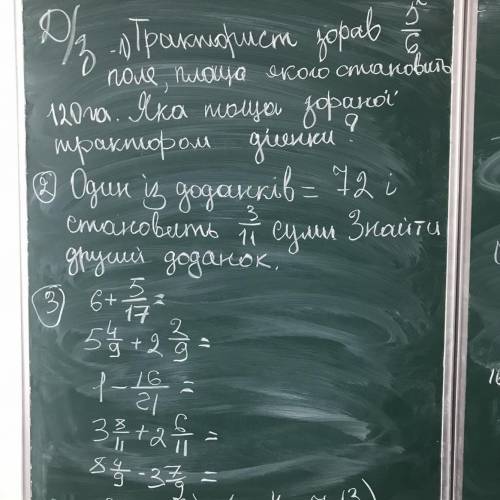 Д/з 1) Тракторист зорав 5/6
поле, площа якого становить
120га. Яка площа зораної
трактором ділянки?
2 Один із доданків = 72 і
становить 3/11 суми Знайти
другий доданок.
3 6 + 5/17 =
5 4/9 + 2 2/9 =
1 - 16/21 =
3 8/11 + 2 6/11 =
8 4/9 - 3 7/9 =